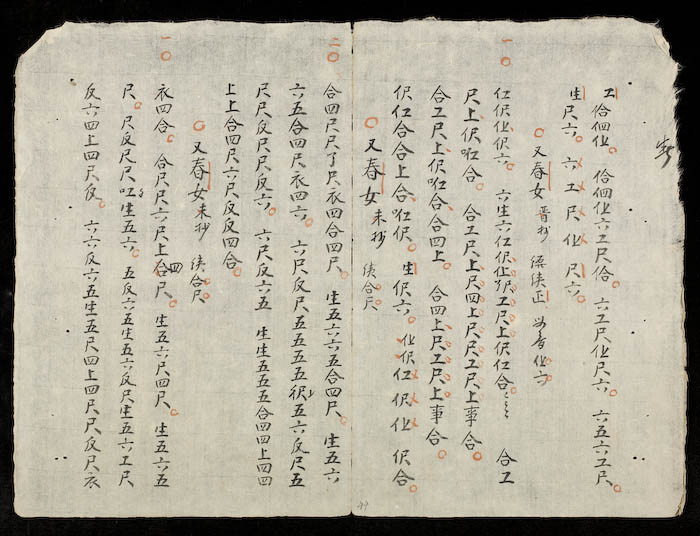 工伶佪㐵 伶佪㐵六工尺伶 六工尺㐵尺六 六五六工尺
生尺六 六工尺㐵尺六
又春女
仜伬㐵伬六 六生六仜伬 工尺上伬仜合 合工
尺上伬㕸合 合工尺上尺四上尺尺工尺上事合
合工尺上伬㕸合合四上 合四上尺工尺上事合
伬仜合合上合㕸伬 生伬六 㐵伬仜伬㐵 伬合
又春女 未抄 合尺
二〇
合四尺尺 尺衣四合四尺 生五六六五合四尺 生五六
六五合四尺衣四六 六尺反尺五五五五 五六反尺五
尺尺反尺尺反六 六尺反六五 生生五五五合四四上四四
上上合四尺六尺反反四合
又春女 未抄 合尺
一〇
衣四合 合尺尺六尺上合四尺 生五六尺四尺 生五六五
尺 尺反尺尺 生五六 五反六五生五六反尺生五六工尺
反六四上四尺反 六六反六五生五尺四上四尺尺反尺衣